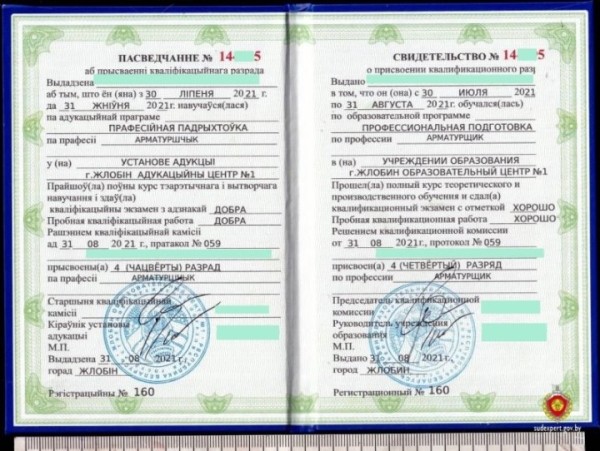 ПАСВЕДЧАННЕ № 14- 5
аб прысваенні кваліфікацыйнага разрада
Выдадзена
аб тым, што ён (яна) з 30 ЛІПЕНЯ 2021 г.
да 31 ЖНІЎНЯ 2021 г. навучаўся(лася)
па адукацыйнай праграме
ПРАФЕСІЙНАЯ ПАДРЫХТОЎКА
па прафесіі АРМАТУРШЧЫК
у (на) УСТАНОВЕ АДУКЦЫІ
г.ЖЛОБІН АДУКАЦЫЙНЫ ЦЕНТР №1
Прайшоў(ла) поўны курс тэарэтычнага і вытворчага
навучання і здаў(ла)
кваліфікацыйны экзамен з адзнакай ДОБРА
Пробная кваліфікацыйная работа ДОБРА
Рашэннем кваліфікацыйнай камісіі
ад 31 08 2021 г., пратакол № 059
прысвоены(а) 4 (ЧАЦВЁРТЫ) РАЗРАД
па прафесіі АРМАТУРШЧЫК
Старшыня кваліфікацыйнай
камісіі
Кіраўнік установы
адукацыі
М.П.
Выдадзена 31 08 2021 г.,
горад ЖЛОБІН
Рэгістрацыйны № 160
СВИДЕТЕЛЬСТВО № 14- 5
о присвоении квалификационного разр
Выдано
в том, что он (она) с 30 ИЮЛЯ 2021 г.
по 31 АВГУСТА 2021 г. обучался(лась)
по образовательной программе
ПРОФЕССИОНАЛЬНАЯ ПОДГОТОВКА
по профессии АРМАТУРЩИК
в (на) УЧРЕЖДЕНИИ ОБРАЗОВАНИЯ
г.ЖЛОБИН ОБРАЗОВАТЕЛЬНЫЙ ЦЕНТР №1
Прошел(ла) полный курс теоретического и
производственного обучения и сдал(а)
квалификационный экзамен с отметкой ХОРОШО
Пробная квалификационная работа ХОРОШО
Решением квалификационной комиссии
от 31 08 2021 г., протокол № 059
присвоен(а) 4 (ЧЕТВЁРТЫЙ) РАЗРЯД
по профессии АРМАТУРЩИК
Председатель квалификационной
комиссии
Руководитель учреждения
образования
М.П.
Выдано 31 08 2021 г.,
город ЖЛОБИН
Регистрационный № 160
sudexpert.gov.by